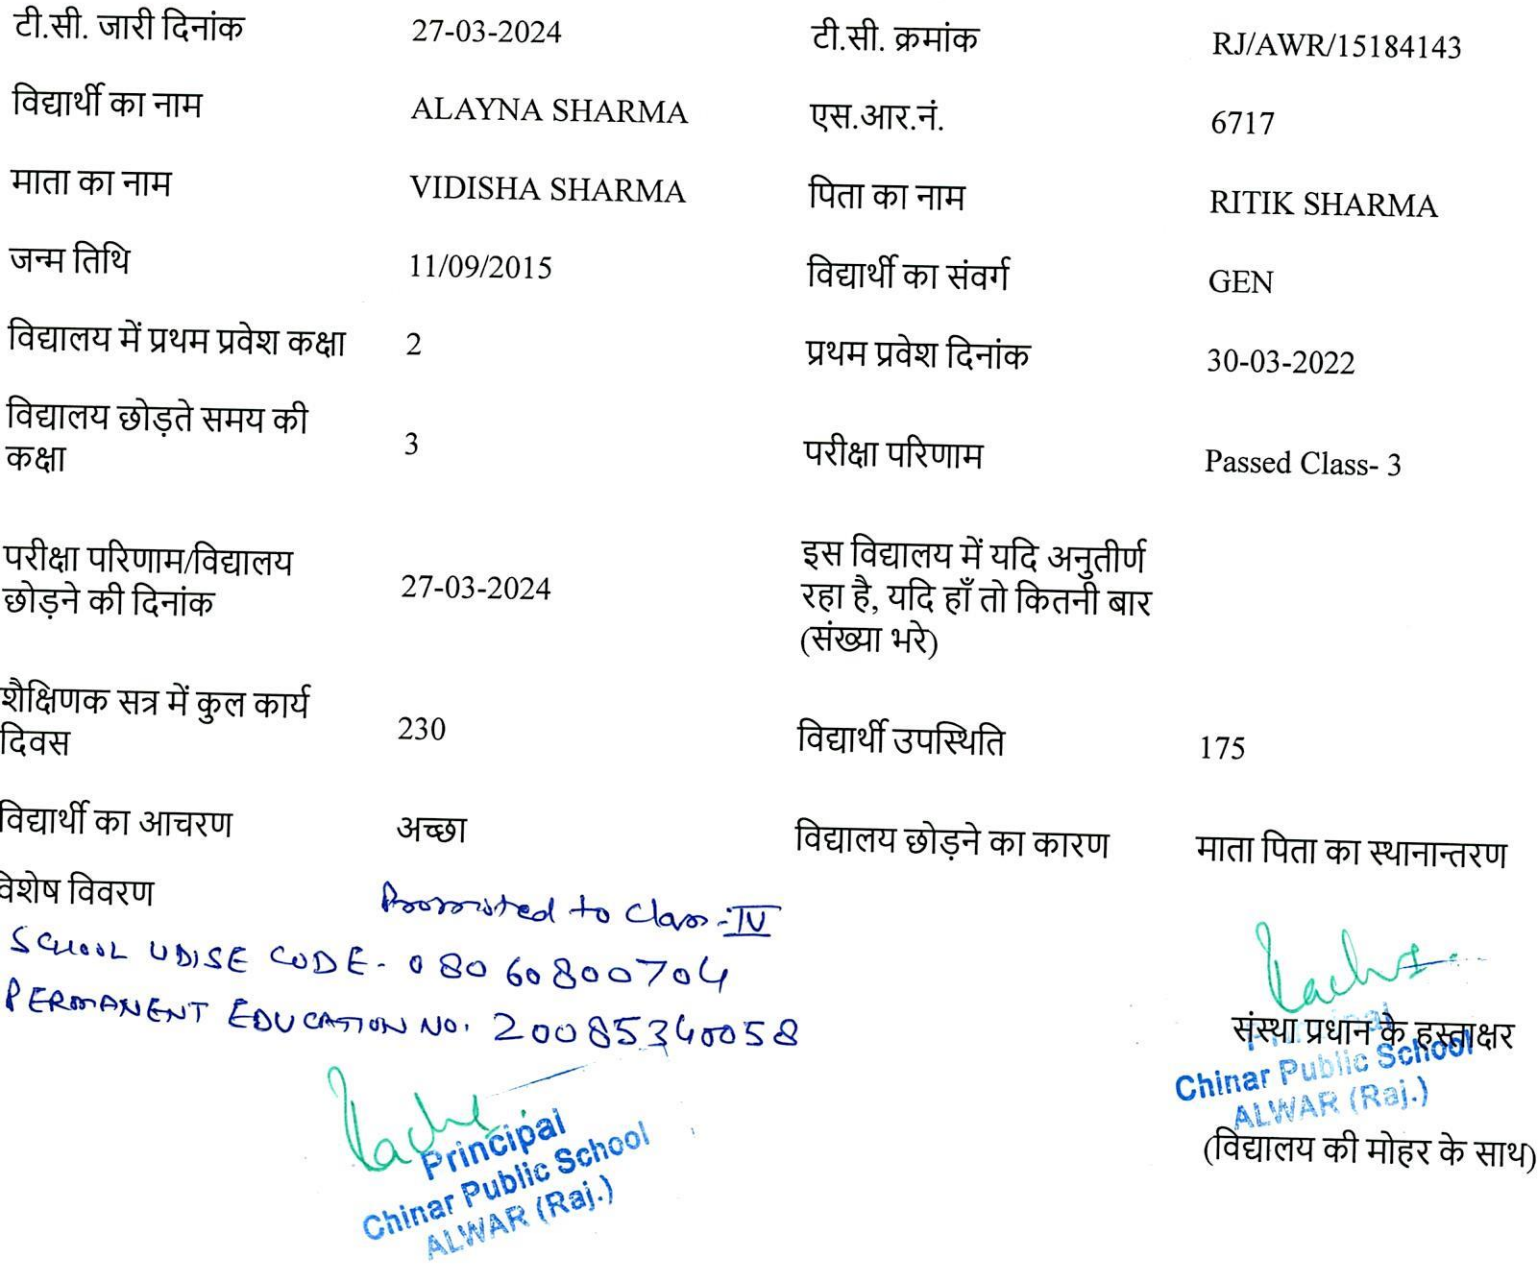 टी.सी. जारी दिनांक 27-03-2024 टी.सी. क्रमांक RJ/AWR/15184143
विद्यार्थी का नाम ALAYNA SHARMA एस.आर.नं. 6717
माता का नाम VIDISHA SHARMA पिता का नाम RITIK SHARMA
जन्म तिथि 11/09/2015 विद्यार्थी का संवर्ग GEN
विद्यालय में प्रथम प्रवेश कक्षा 2 प्रथम प्रवेश दिनांक 30-03-2022
विद्यालय छोड़ते समय की
कक्षा 3 परीक्षा परिणाम Passed Class- 3
परीक्षा परिणाम/विद्यालय
छोड़ने की दिनांक 27-03-2024
इस विद्यालय में यदि अनुतीर्ण
रहा है, यदि हाँ तो कितनी बार
(संख्या भरे)
शैक्षिणक सत्र में कुल कार्य
दिवस 230 विद्यार्थी उपस्थिति 175
विद्यार्थी का आचरण अच्छा विद्यालय छोड़ने का कारण माता पिता का स्थानान्तरण
विशेष विवरण Promoted to Class-IV
SCHOOL UDISE CODE- 08060800704
PERMANENT EDUCATION NO. 20085340058
संस्था प्रधान के हस्ताक्षर
Principal
Chinar Public School
ALWAR (Raj.)
(विद्यालय की मोहर के साथ)
Principal
Chinar Public School
ALWAR (Raj.)